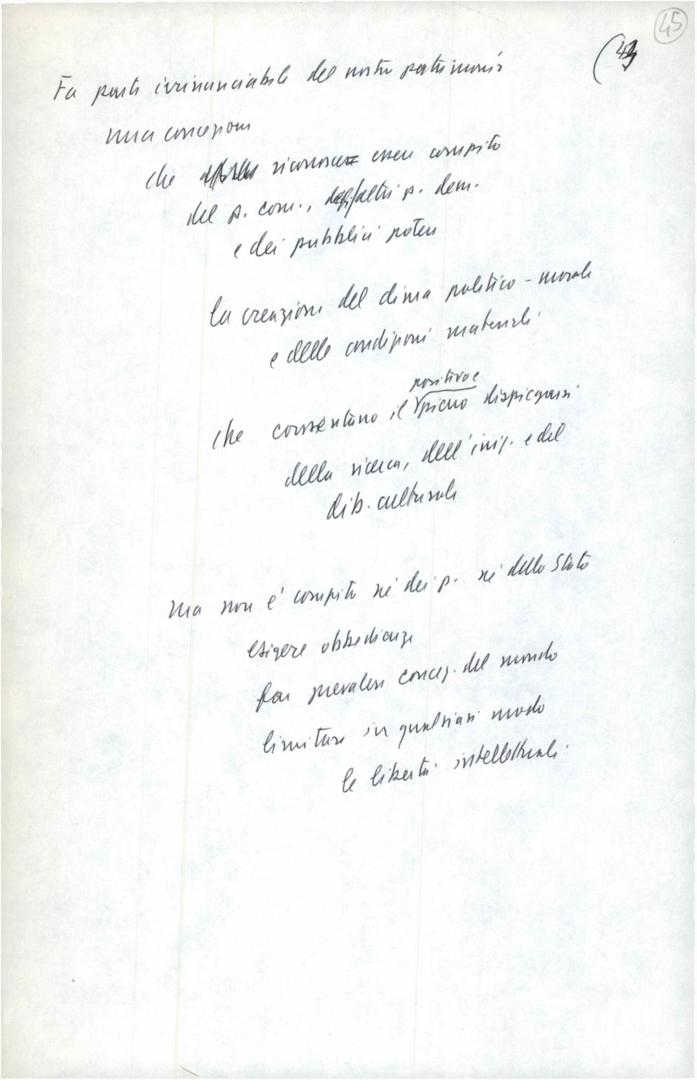 45
Fa parte irrinunciabile del nostro patrimonio
una concezione
che riconosce essere compito
del p. com., degli altri p. dem.
e dei pubblici poteri
la creazione del clima politico-morale
e delle condizioni materiali
positivo e
che consentano il pieno dispiegarsi
della ricerca, dell'inig. e del
dib. culturale
ma non è compito né dei p. né dello Stato
esigere obbedienze
far prevalere concez. del mondo
limitare in qualsiasi modo
le libertà intellettuali.